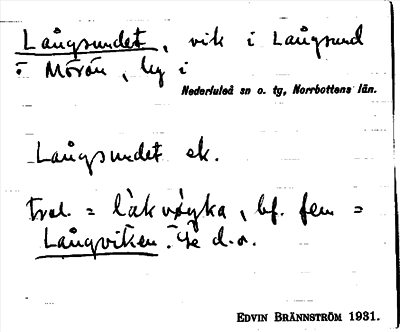 Långsundet, vik i Långsund
i Mörön, by i
Nederluleå sn o. tg, Norrbottens län.
Långsundet ek.
tral. = låkvøyka, bf. fem =
Långviken. Se d.o.
EDVIN BRÄNNSTRÖM 1931.